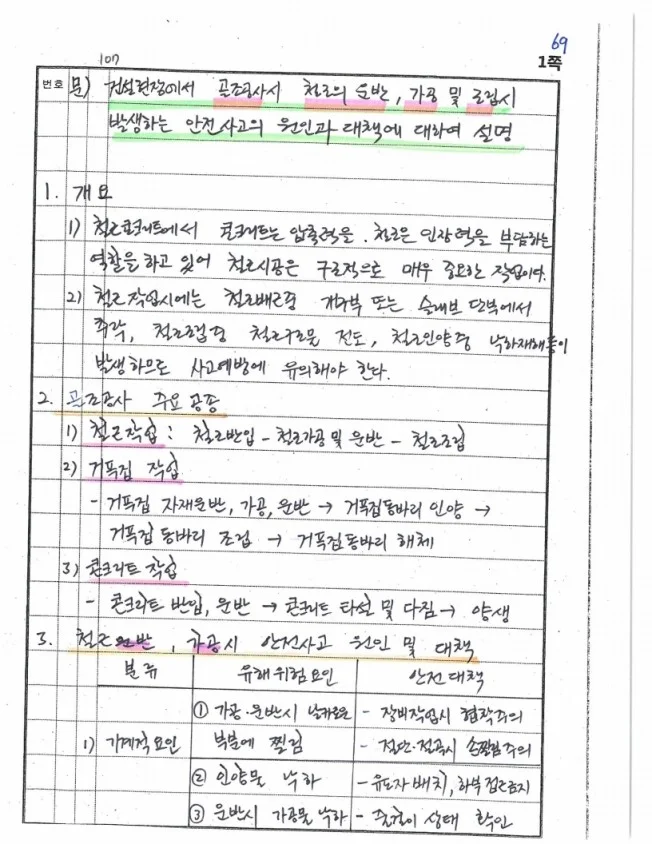 107
69
1쪽
번호 문) 건설현장에서 골조공사시 철근의 운반, 가공 및 조립시
발생하는 안전사고의 원인과 대책에 대하여 설명
1. 개요
1) 철근콘크리트에서 콘크리트는 압축력을. 철근은 인장력을 부담하는
역할을 하고 있어 철근시공은 구조적으로 매우 중요한 작업이다.
2) 철근작업시에는 철근배근중 개구부 또는 슬래브 단부에서
추락, 철근조립중 철근구조물 전도, 철근인양중 낙하재해등이
발생하므로 사고예방에 유의해야 한다.
2. 골조공사 주요 공종
1) 철근작업 : 철근반입 - 철근가공 및 운반 - 철근조립
2) 거푸집 작업
- 거푸집 자재운반, 가공, 운반 → 거푸집동바리 인양 →
거푸집동바리 조립 → 거푸집동바리 해체
3) 콘크리트 작업
- 콘크리트 반입, 운반 → 콘크리트 타설 및 다짐 → 양생
3. 철근운반, 가공시 안전사고 원인 및 대책
분류 유해위험요인 안전대책
① 가공·운반시 날카로운 - 장비작업시 협착주의
1) 기계적요인 부분에 찔림 - 절단·절곡시 손찔림주의
② 인양물 낙하 - 유도자 배치, 하부접근금지
③ 운반시 가공물 낙하 - 줄걸이 상태 확인